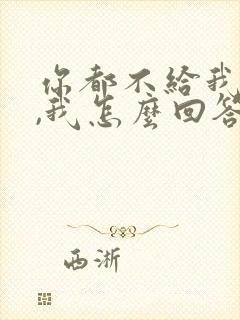 你都不给我
,我怎麽回答
西淅